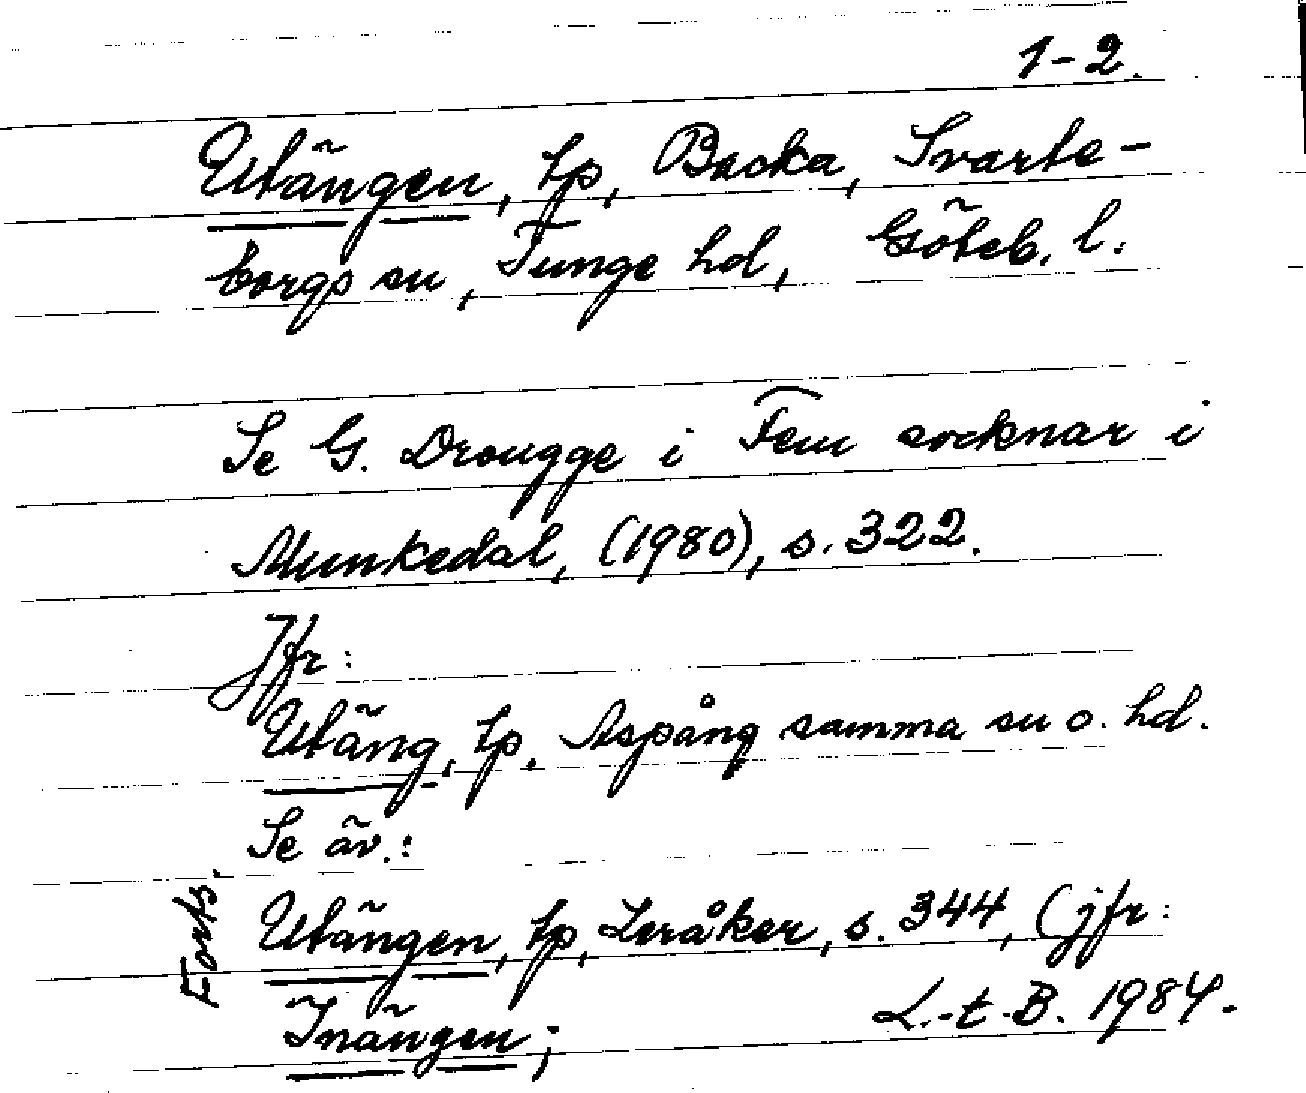 1-2.
Utängen, tp, Backa, Svarte-
borgs sn, Tunge hd, Göteb. l.
Se G. Drougge i Fem socknar i
Munkedal, (1980), s. 322.
Jfr:
Utäng, tp. Aspång samma sn o. hd.
Se äv.:
Utängen, tp, Leråker, s. 344, (jfr:
Inängen;
L.-t.-B. 1984.
Forts.